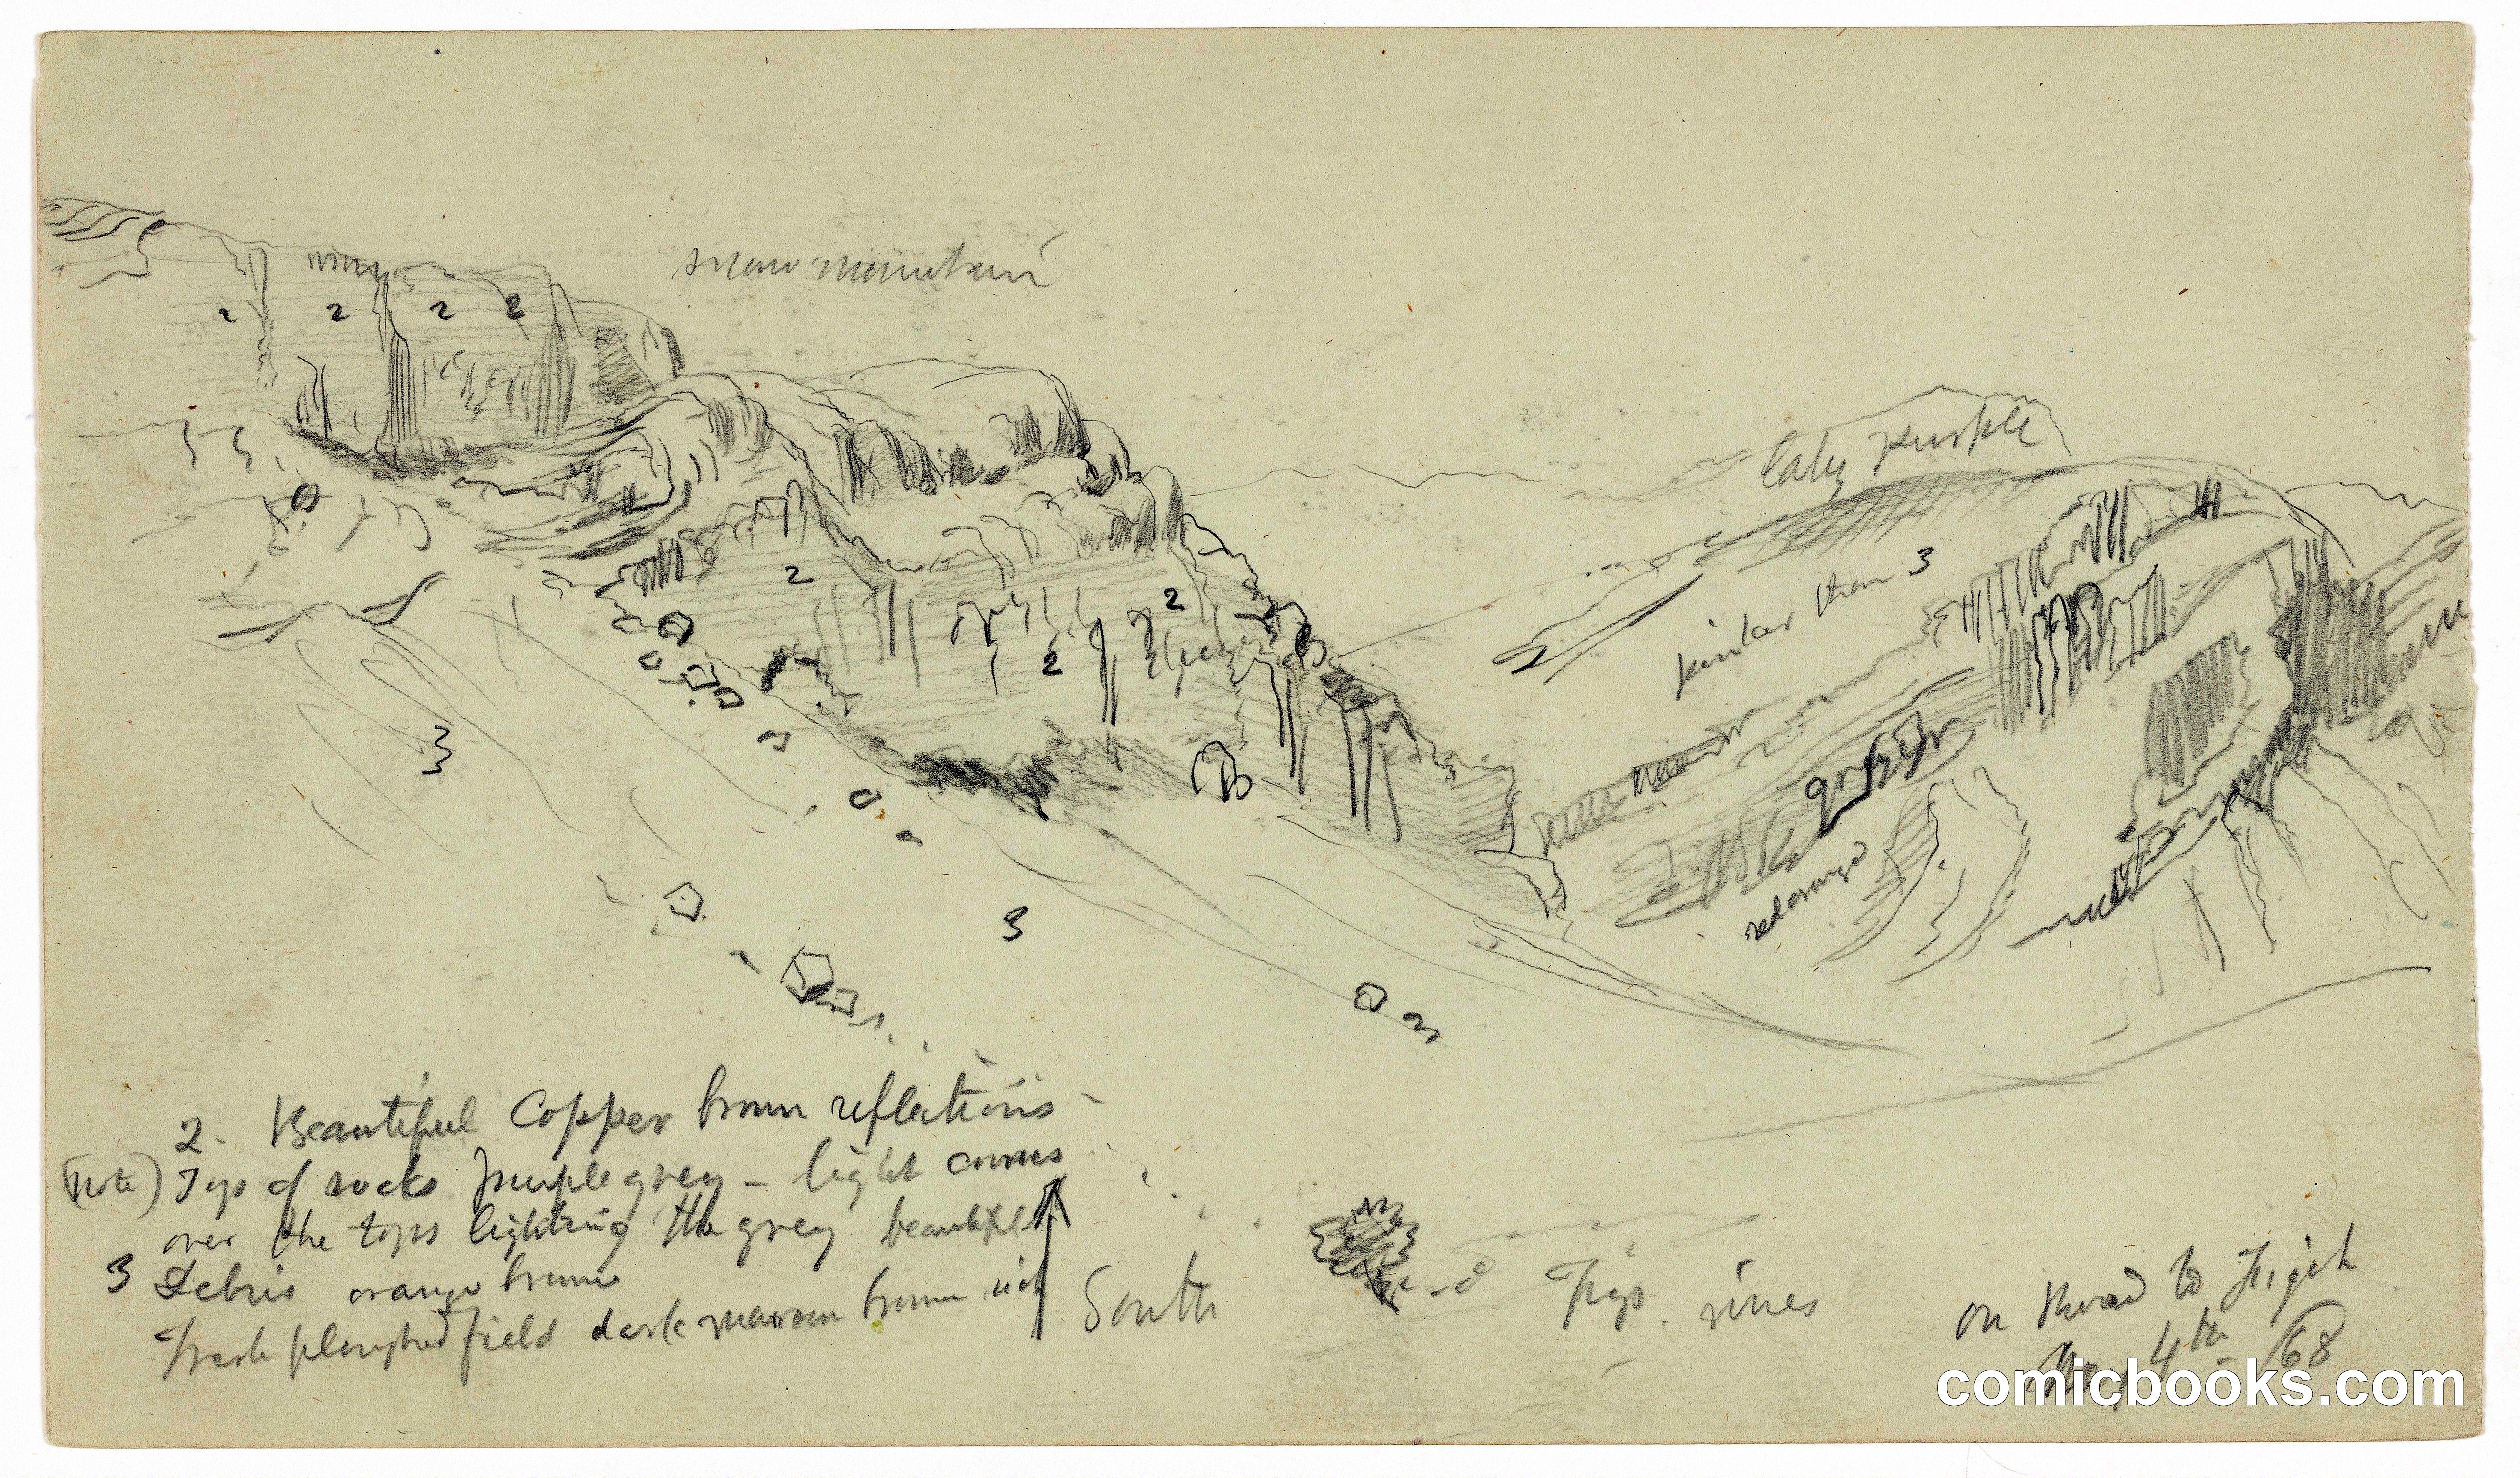 snow mountain
2 2 2 2
laky purple
pinker than 3
2
2
2
green
3
3
2. Beautiful Copper brown reflections -
(note) Tops of rocks purple grey - light comes
over the tops lighting the grey beautiful
3 Debris orange brown
Fresh ploughed field dark maroon brown rich
South
Figs. vines
on Road to Fijeh
May 4th - 68
comicbooks.com